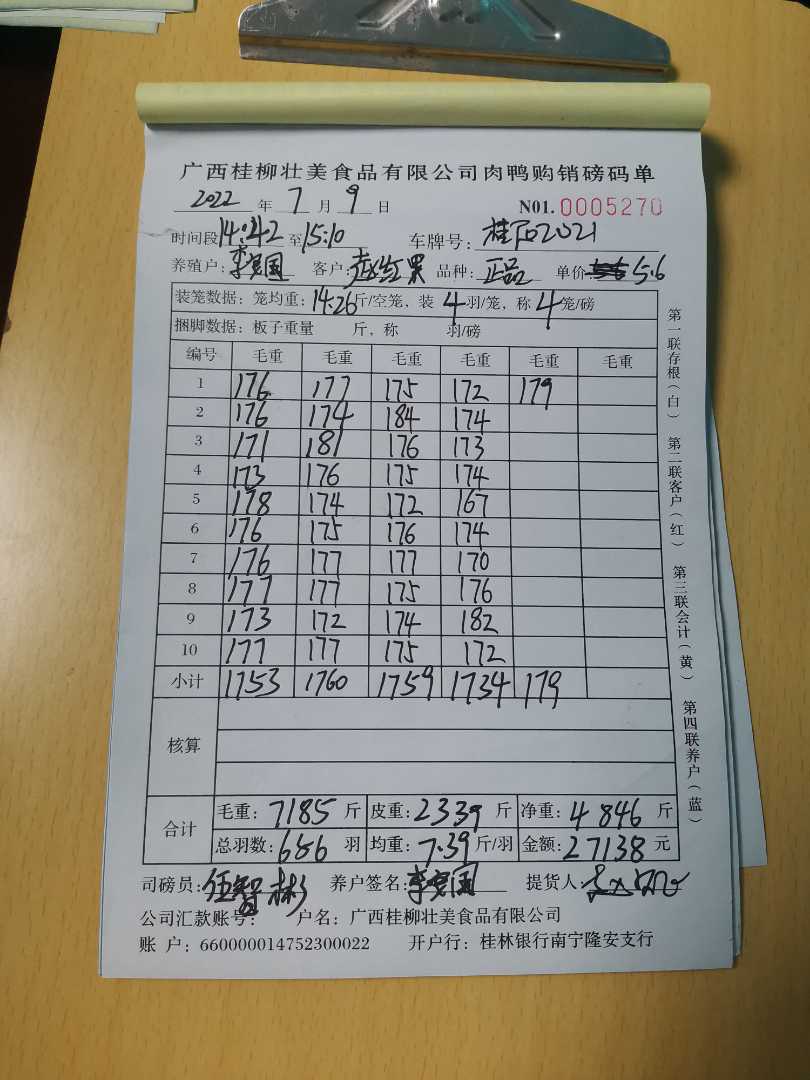 广西桂柳壮美食品有限公司肉鸭购销磅码单
2022 年 7 月 9 日 N01.0005270
时间段 14:42 至 15:10 车牌号: 桂 2021
养殖户: 李 国 客户: 赵红果 品种: 正品 单价: 5.6
装笼数据: 笼均重: 14.26 斤/空笼, 装 4 羽/笼, 称 4 笼/磅
捆脚数据: 板子重量 斤, 称 羽/磅
编号 毛重 毛重 毛重 毛重 毛重 毛重
1 176 177 175 172 179
2 176 174 184 174
3 171 181 176 173
4 173 176 175 174
5 178 174 172 167
6 176 175 176 174
7 176 177 177 170
8 177 177 175 176
9 173 172 174 182
10 177 177 175 172
小计 1753 1760 1759 1734 179
核算
合计 毛重: 7185 斤 皮重: 2339 斤 净重: 4846 斤
总羽数: 656 羽 均重: 7.39 斤/羽 金额: 27138 元
司磅员: 伍智彬 养户签名: 李 国 提货人:
公司汇款账号: 户名: 广西桂柳壮美食品有限公司
账 户: 660000014752300022 开户行: 桂林银行南宁隆安支行
第一联存根(白) 第二联客户(红) 第三联会计(黄) 第四联养户(蓝)